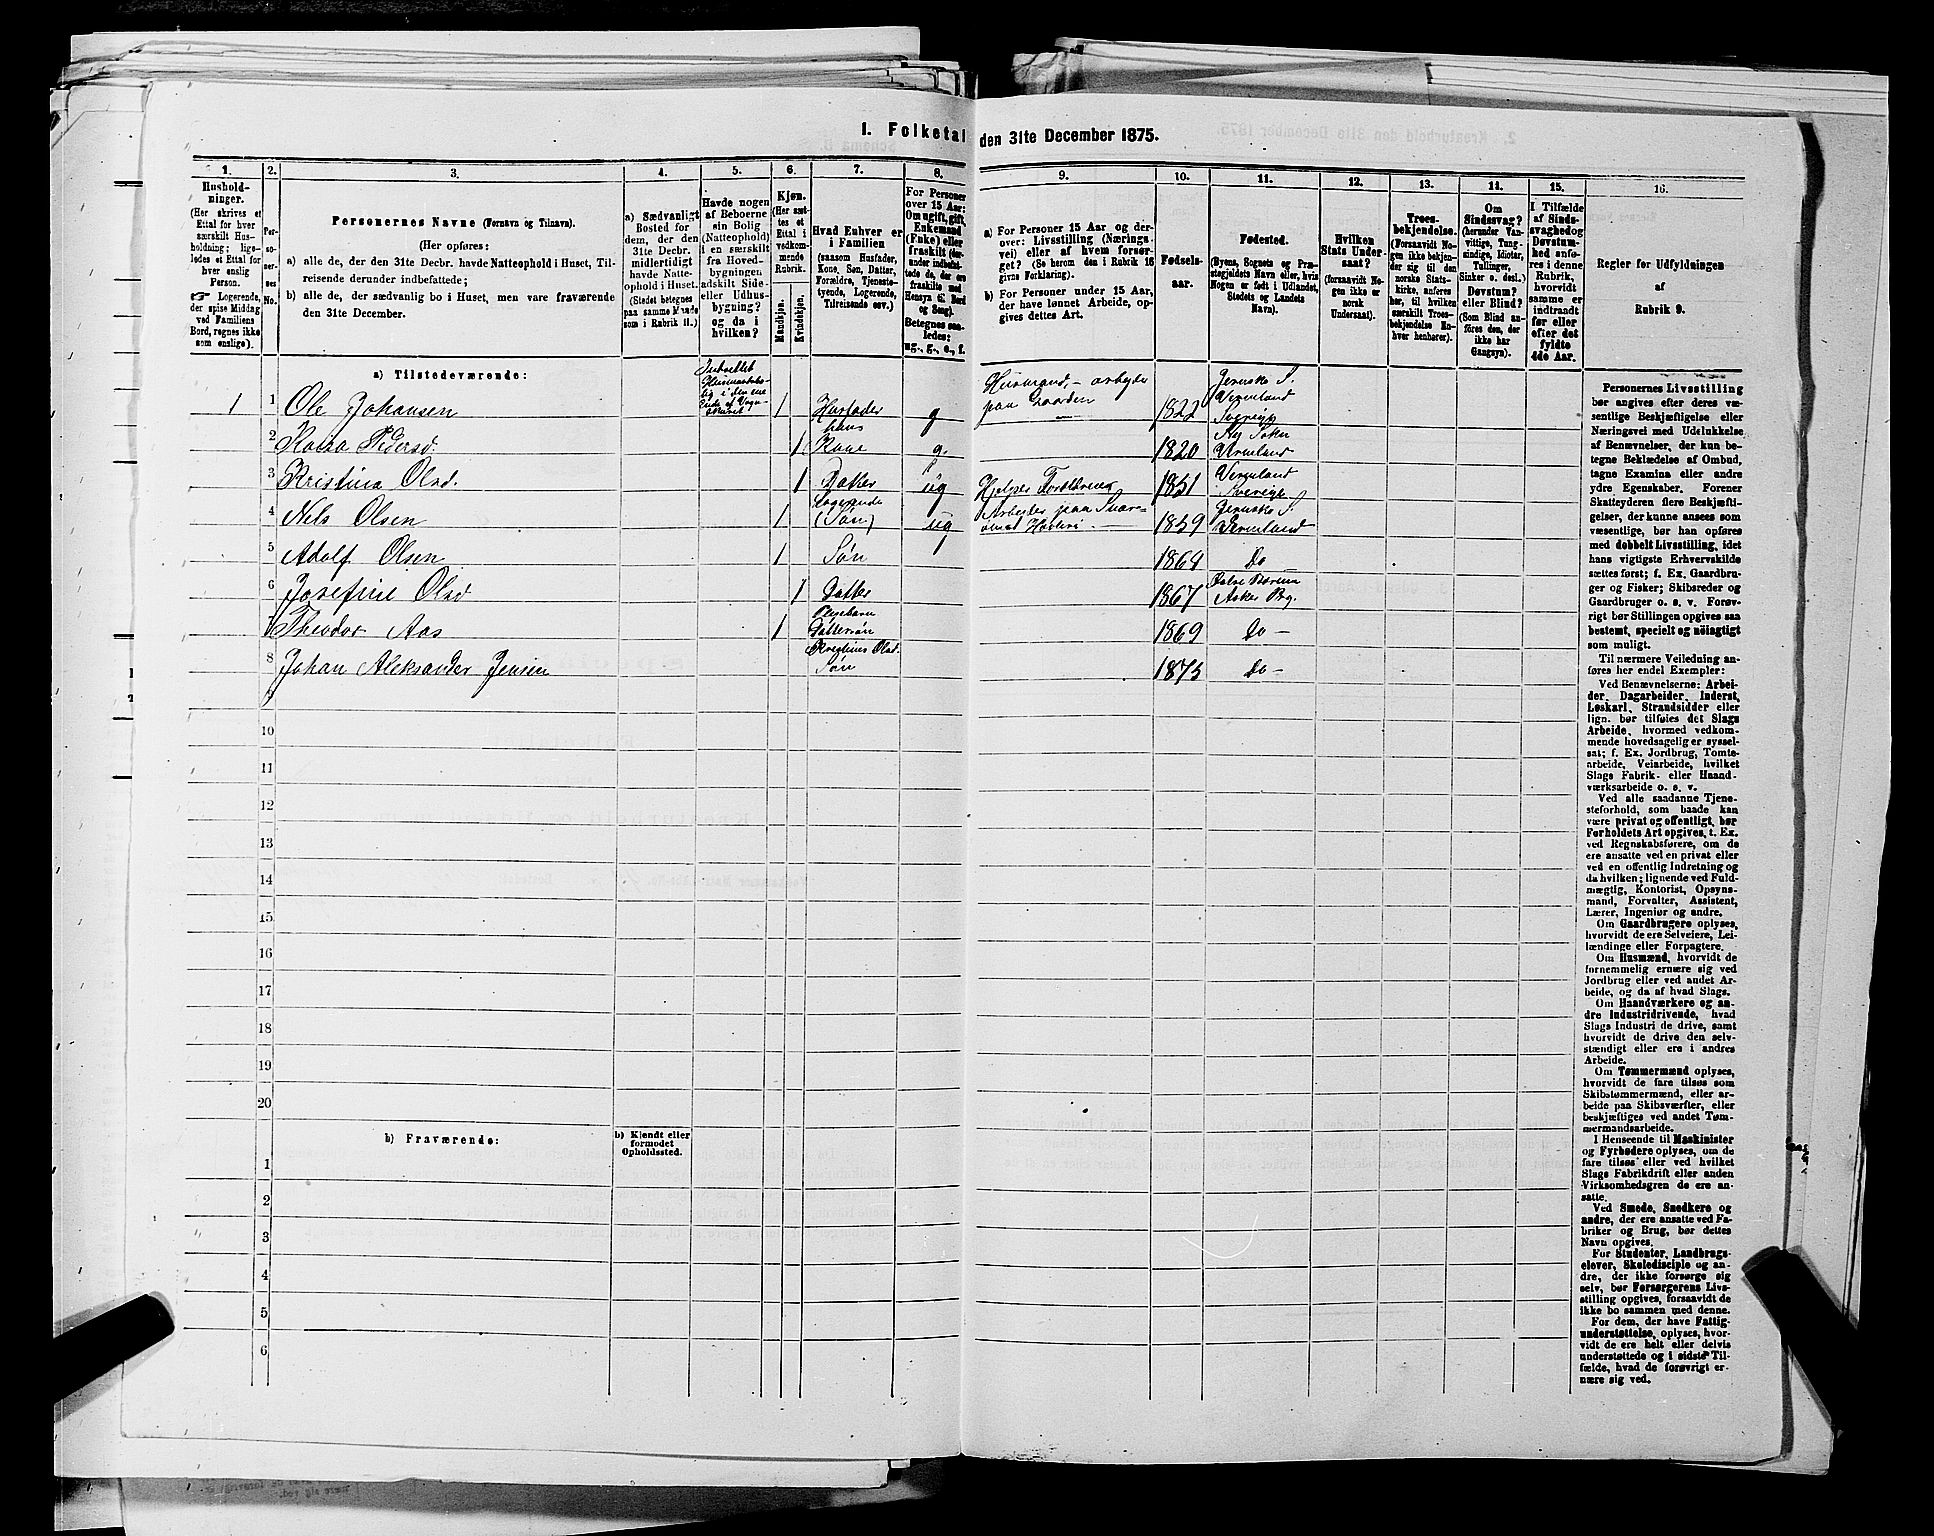 I. Folketal den 31te December 1875.
1.
Husholdninger.
(Her skrives et
Ettal for hver
særskilt Husholdning;
ligeledes et Ettal for
hver enslig
Person.
☞ Logerende,
der spise Middag
ved Familiens
Bord, regnes ikke
som enslige).
2.
Personernes
No.
3.
Personernes Navne (Fornavn og Tilnavn).
(Her opføres:
a) alle de, der den 31te Decbr. havde Natteophold i Huset, Tilreisende
derunder indbefattede;
b) alle de, der sædvanlig bo i Huset, men vare fraværende
den 31te December.
4.
a) Sædvanligt
Bosted for
dem, der den
31te Decbr.
midlertidigt
havde Natteophold
i Huset.
(Stedet betegnes
paa samme Maade
som i Rubrik 11.)
5.
Havde nogen
af Beboerne
sin Bolig
(Natteophold)
i en særskilt
fra Hovedbygningen
adskilt Side-
eller Udhusbygning?
og da i
hvilken?
6.
Kjøn.
(Her sættes
et
Ettal i
vedkommende
Rubrik.
Mandkjøn.
Kvindekjøn.
7.
Hvad Enhver er
i Familien
(saasom Husfader,
Kone, Søn, Datter,
Forældre, Tjenestetyende,
Logerende,
Tilreisende osv.)
8.
For Personer
over 15 Aar:
Om ugift, gift,
Enkemand
(Enke) eller
fraskilt
Betegnes saaledes:
ug., g., e., f.
9.
a) For Personer 15 Aar og derover:
Livsstilling (Næringsvei)
eller af hvem forsørget?
(Se herom den i Rubrik 16
givne Forklaring).
b) For Personer under 15 Aar,
der have lønnet Arbeide, opgives
dettes Art.
10.
Fødselsaar.
11.
Fødested.
(Byens, Sognets og Præstegjeldets
Navn eller, hvis
Nogen er født i Udlandet,
Stedets og Landets
Navn).
12.
Hvilken
Stats Undersaat?
(forsaavidt Nogen
ikke er
norsk
Undersaat).
13.
Troesbekjendelse.
(Forsaavidt Nogen
ikke bekjender
sig til den
norske Statskirke,
anføres
her, til hvilken
særskilt Troesbekjendelse
Enhver
henhører).
14.
Om
Sindssvag?
(herunder Vanvittige,
Tungsindige,
Idioter,
Tullinger,
Sinker o. desl.).
Døvstum?
eller Blind?
(Som Blind anføres
den, der
ikke har
Gangsyn).
15.
I Tilfælde
af Sindssvaghed
og
Døvstumhed
anføres
i denne
Rubrik,
hvorvidt
samme er
indtraadt
før eller
efter det
fyldte
4de Aar.
16.
Regler for Udfyldningen
af
Rubrik 9.
a) Tilstedeværende:
1 1 Ole Johansen 1 Husfader g Husmand, - arbeyde paa Gaarden 1822 Jernsko S. Vermland Sverige
2 Kaisa Pedersd. 1 hans Kone g. 1820 Ny Soken Vermland
3 Kristina Olsd. 1 Datter ug 1851 Vermland Sverige
4 Nels Olsen 1 Logerende (Søn) ug 1859 Jernsko S. Vermland
5 Adolf Olsen 1 Søn 1864 Do
6 Josefine Olsd 1 Datter 1867 Asker Pg.
7 Theodor Aas 1 Pleiebarn Dattersøn 1869 Do -
8 Johan Aleksander Jensen Kristines Olsd. Søn 1875 Do -
9
10
11
12
13
14
15
16
17
18
19
20
b) Fraværende:
b) Kjendt eller
formodet
Opholdssted.
1
2
3
4
5
6
Personernes Livsstilling
bør angives efter deres væsentlige
Beskjæftigelse eller
Næringsvei med Udelukkelse
af Benævnelser, der kun betegne
Beklædelse af Ombud,
tagne Examina eller andre
ydre Egenskaber. Forener
Skatteyderen flere Beskjæftigelser,
der kunne ansees som
væsentlige, bør han opføres
med dobbelt Livsstilling, idet
hans vigtigste Erhvervskilde
sættes først; f. Ex. Gaardbruger
og Fisker; Skibsreder og
Gaardbruger o. s. v. Forøvrigt
bør Stillingen opgives saa
bestemt, specielt og nøiagtigt
som muligt.
Til nærmere Veiledning anføres
her endel Exempler:
Ved Benævnelserne: Arbeider,
Dagarbeider, Inderst,
Løskarl, Strandsidder eller
lign. bør tilføies det Slags
Arbeide, hvormed vedkommende
hovedsagelig er sysselsat;
f. Ex. Jordbrug, Tomtearbeide,
Veiarbeide, hvilket
Slags Fabrik- eller Haandværksarbeide
o. s. v.
Ved alle saadanne Tjenesteforhold,
som baade kan
være privat og offentligt, bør
Forholdets Art opgives, t. Ex.
ved Regnskabsførere, om de
ere ansatte ved en privat eller
ved en offentlig Indretning og
da hvilken; lignende ved Fuldmægtig,
Kontorist, Opsynsmand,
Forvalter, Assistent,
Lærer, Ingeniør og andre.
Om Gaardbrugere oplyses,
hvorvidt de ere Selveiere, Leilændinge
eller Forpagtere.
Om Husmænd, hvorvidt de
fornemmelig ernære sig ved
Jordbrug eller ved andet Arbeide,
og da af hvad Slags.
Om Haandværkere og andre
Industridrivende, hvad
Slags Industri de drive, samt
hvorvidt de drive den selvstændigt
eller ere i andres
Arbeide.
Om Tømmermænd oplyses,
hvorvidt de fare tilsøs som
Skibstømmermænd, eller arbeide
paa Skibsværfter, eller
beskjæftiges ved andet Tømmermandsarbeide.
I Henseende til Maskinister
og Fyrbødere oplyses, om de
fare tilsøs eller ved hvilket
Slags Fabrikdrift eller anden
Virksomhedsgren de ere ansatte.
Ved Smede, Snedkere og
andre, der ere ansatte ved Fabriker
og Brug, bør dettes
Navn opgives.
For Studenter, Landbrugselever,
Skoledisciple og andre,
der ikke forsørge sig
selv, bør Forsørgerens Livsstilling
opgives, forsaavidt de
ikke bo sammen med denne.
For dem, der have Fattigunderstøttelse,
oplyses, hvorvidt
de ere helt eller delvis
understøttede og i sidste Tilfælde,
hvad de forøvrigt ernære
sig ved.